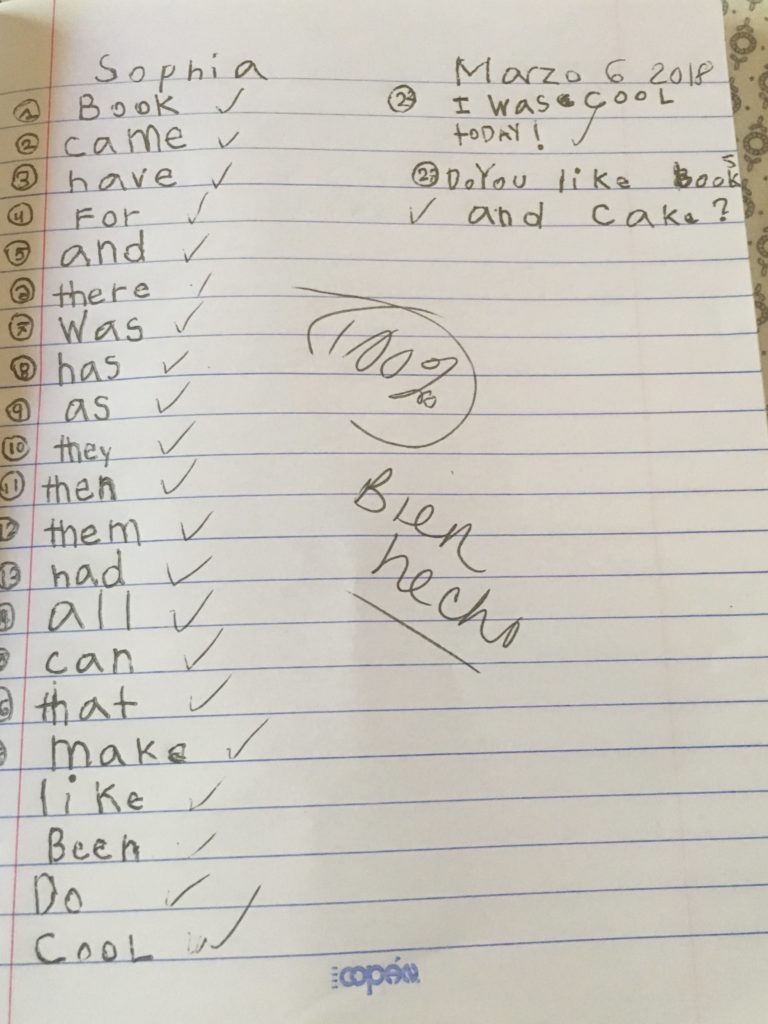 Sophia
Marzo 6 2018
① Book ✓
② came ✓
③ have ✓
④ For ✓
⑤ and ✓
there ✓
Was ✓
⑧ has ✓
⑨ as ✓
⑩ they ✓
⑪ then ✓
12 them ✓
13 had ✓
all ✓
can ✓
that ✓
make ✓
like ✓
Been ✓
Do ✓
CooL ✓
I was cooL
toDAY! ✓
DoYou like books
✓ and cake?
100%
Bien
hecho
copán